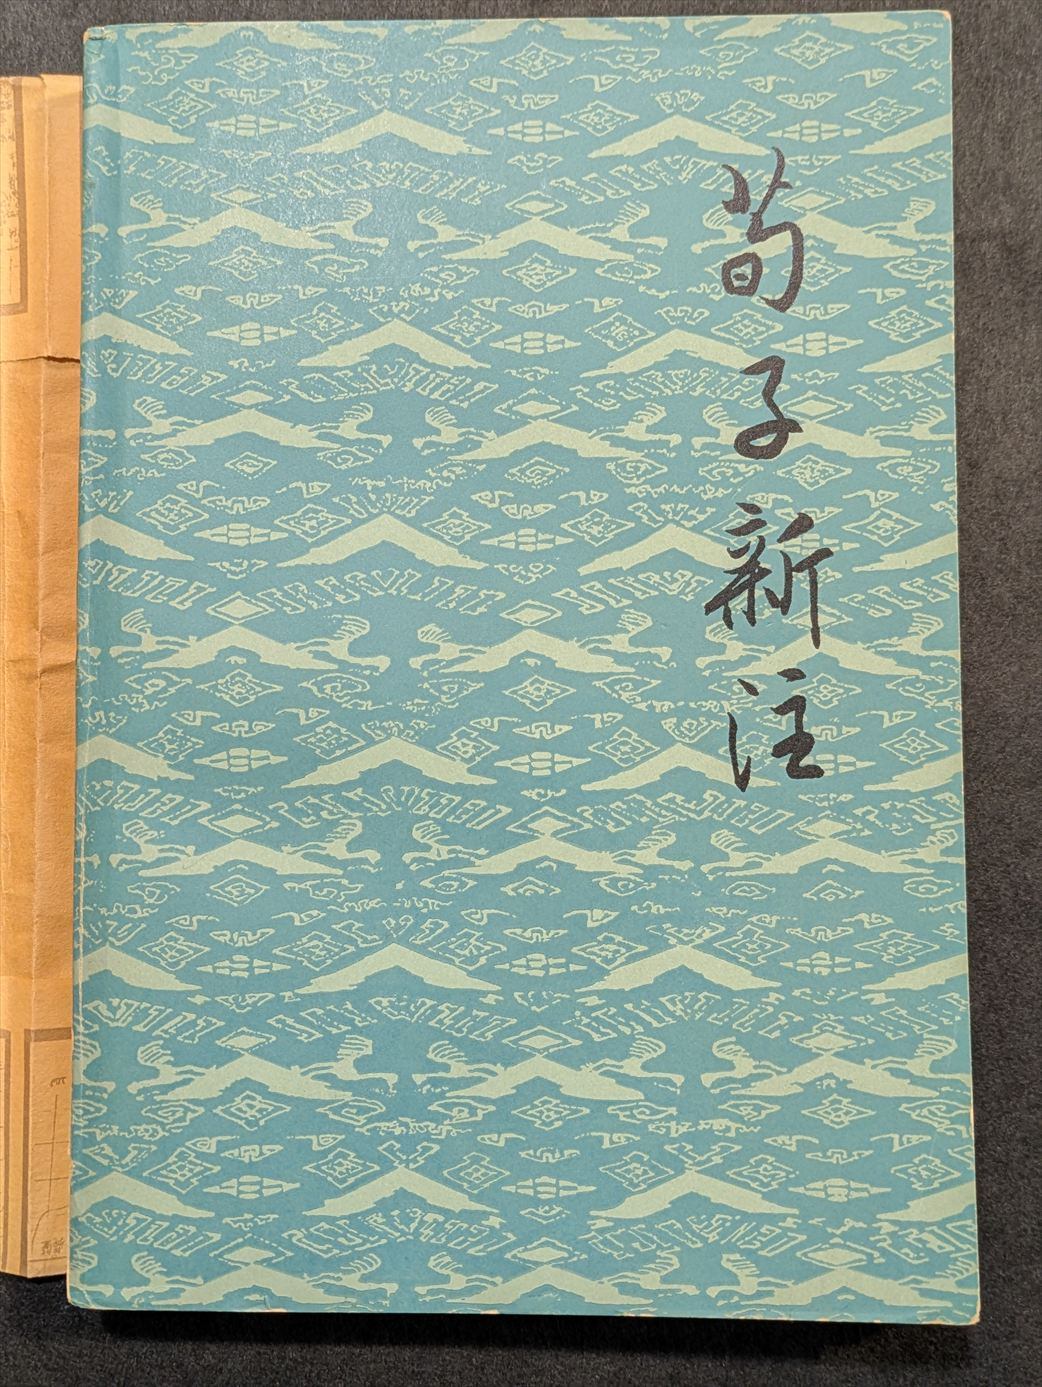 荀子新注